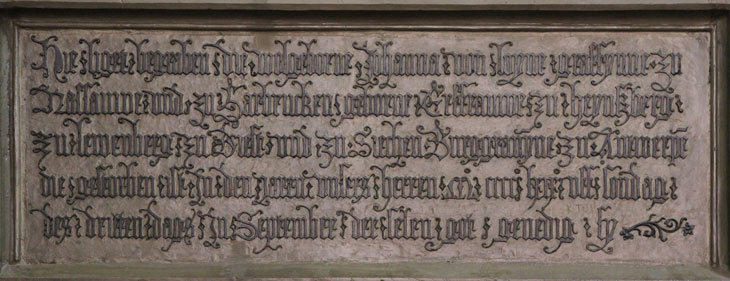 Hie ligt begraben die wolgeborne Johanna von Loyne greffynne zu
Nassauwe und zu Sarbrucken geborne Erffrauwe zu heynßberg
zu lewenberge zu Diest und zu Sichen Burggreffynne zu Antwerpe
die gestorben ist In den Jaren unsers herren uff sondag
des dritten dages In September der selen got genedig sy